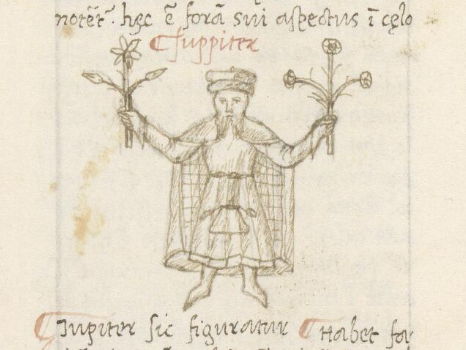 notēt. hęc ē formā sui aspectus ī cęlo
Juppiter
Jupiter sic figuratur Habet for